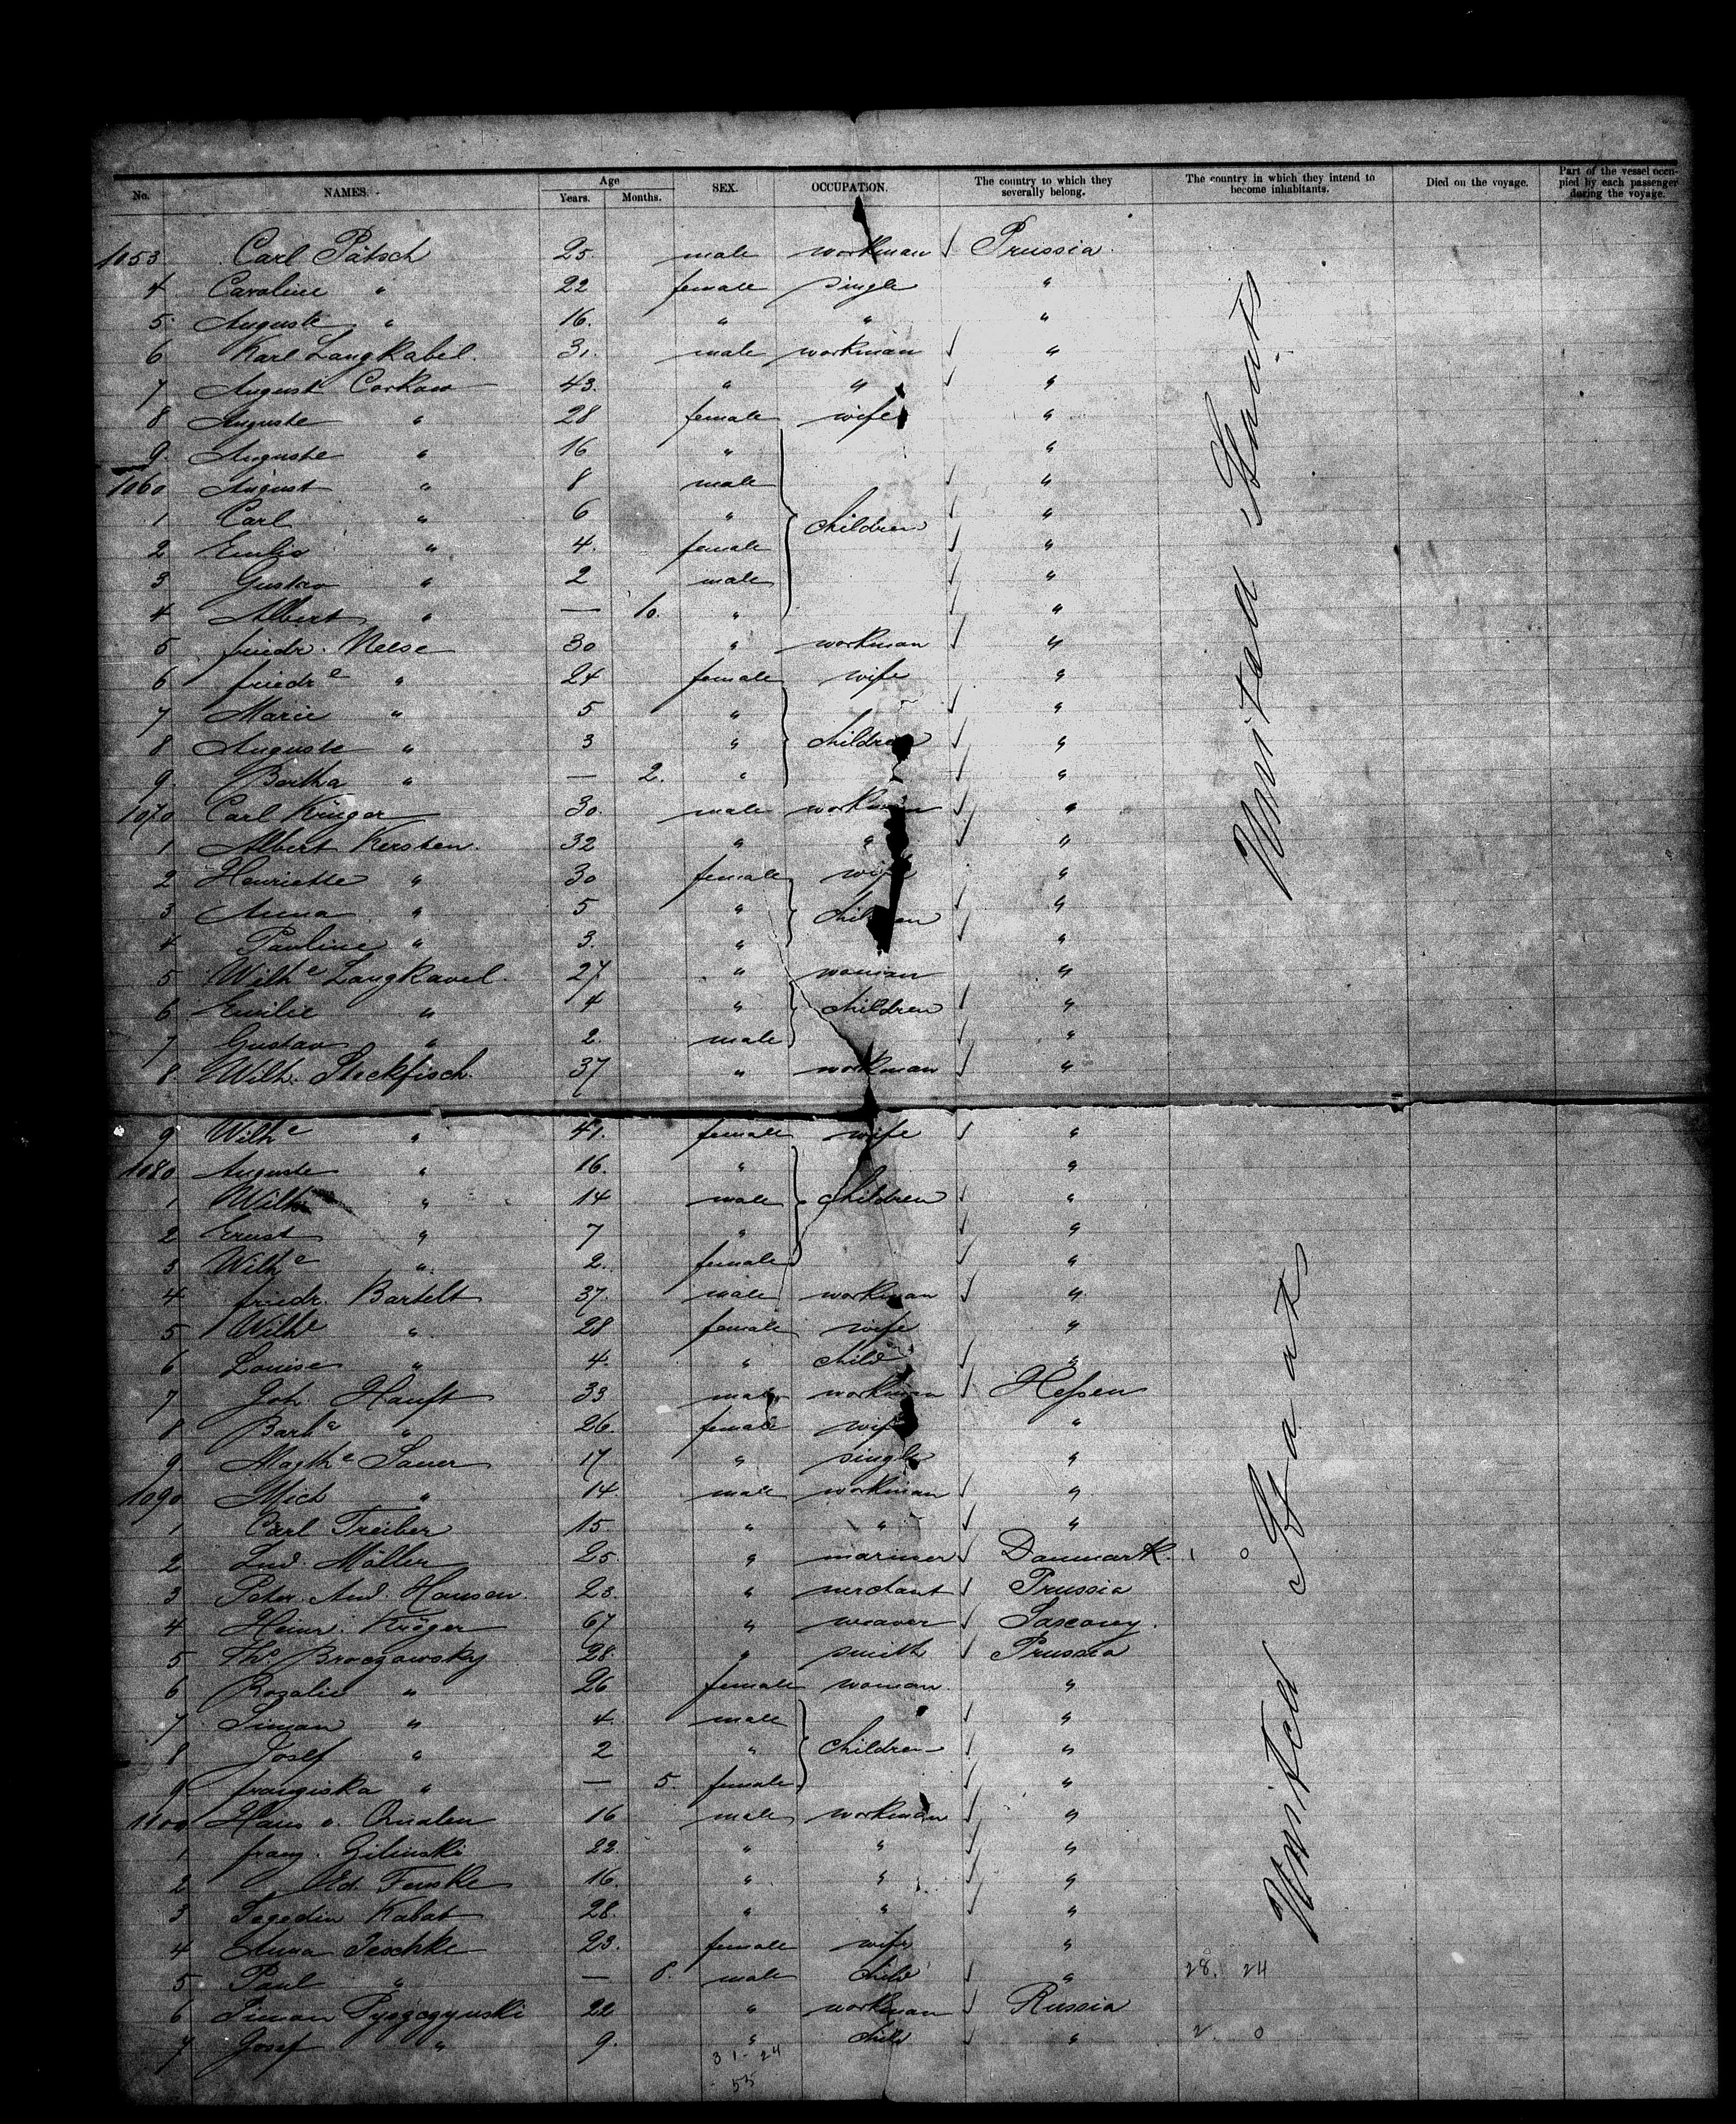 No. NAMES. Age Years. Months. SEX. OCCUPATION. The country to which they severally belong. The country in which they intend to become inhabitants. Died on the voyage. Part of the vessel occupied by each passenger during the voyage.
1053 Carl Pätsch 25 male workman Prussia
4 Caroline " 22 female single "
5 Auguste " 16. " " "
6 Karl Langkabel. 31. male workman "
7 August Corkau 43. " " "
8 Auguste " 28 female wife "
9 Auguste " 16 " "
1060 August " 8 male "
1 Carl " 6 " children "
2 Emilie " 4. female "
3 Gustav " 2 male "
4 Albert " — 10. " "
5 friedr. Neese 30 " workman "
6 friedre " 24 female wife "
7 Marie " 5 " "
8 Auguste " 3 " children "
9. Bertha " — 2. " "
1070 Carl Krüger 30. male workman "
1 Albert Kersten. 32 " " "
2 Henriette " 30 female wife "
3 Anna " 5 " children "
4 Pauline " 3. " "
5 Wilhe Langkavel. 27 " woman "
6 Emilie " 4 " children "
7 Gustav " 2. male "
8. Wilh. Steckfisch. 37 " workman "
9 Wilhe " 41. female wife "
1080 Auguste " 16. " "
1 Wilh " 14 male children "
2 Ernst " 7 " "
3 Wilhe " 2. female "
4 friedr. Bartelt 37. male workman "
5 Wilhe " 28 female wife "
6 Louise " 4. " child "
7 Joh. Hauft 33 male workman Hessen
8 Barba " 26. female wife "
9 Magthe Sauer 17 " single "
1090 Mich " 14. male workman "
1 Carl Treiber 15. " " "
2 Lud. Möller 25. " mariner Danmark. 1 0
3 Peter And. Hansen. 23. " merchant Prussia
4 Heinr. Krüger 67 " weaver Saxony.
5 Ths Broczowsky 28. " smith Prussia
6 Rozalie " 26 female woman. "
7 Simon " 4. male "
8 Josef " 2 " children "
9 franziska " — 5. female "
1100 Hans v. Qualen 16 male workman "
1 franz. Gilinski 22. " " "
2 Ed. Fenske 16. " " "
3 Kabat 28. " " "
4 Anna Jeschke 23. female wife "
5 Paul " — 8. male child " 28. 24
6 Simon 22 " workman Russia
7 Josef " 9. " child " 2. 0
31-24
55
United States
United States